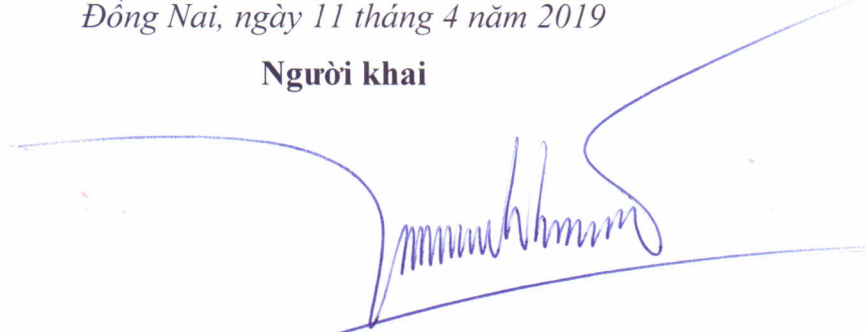 Đồng Nai, ngày 11 tháng 4 năm 2019
Người khai